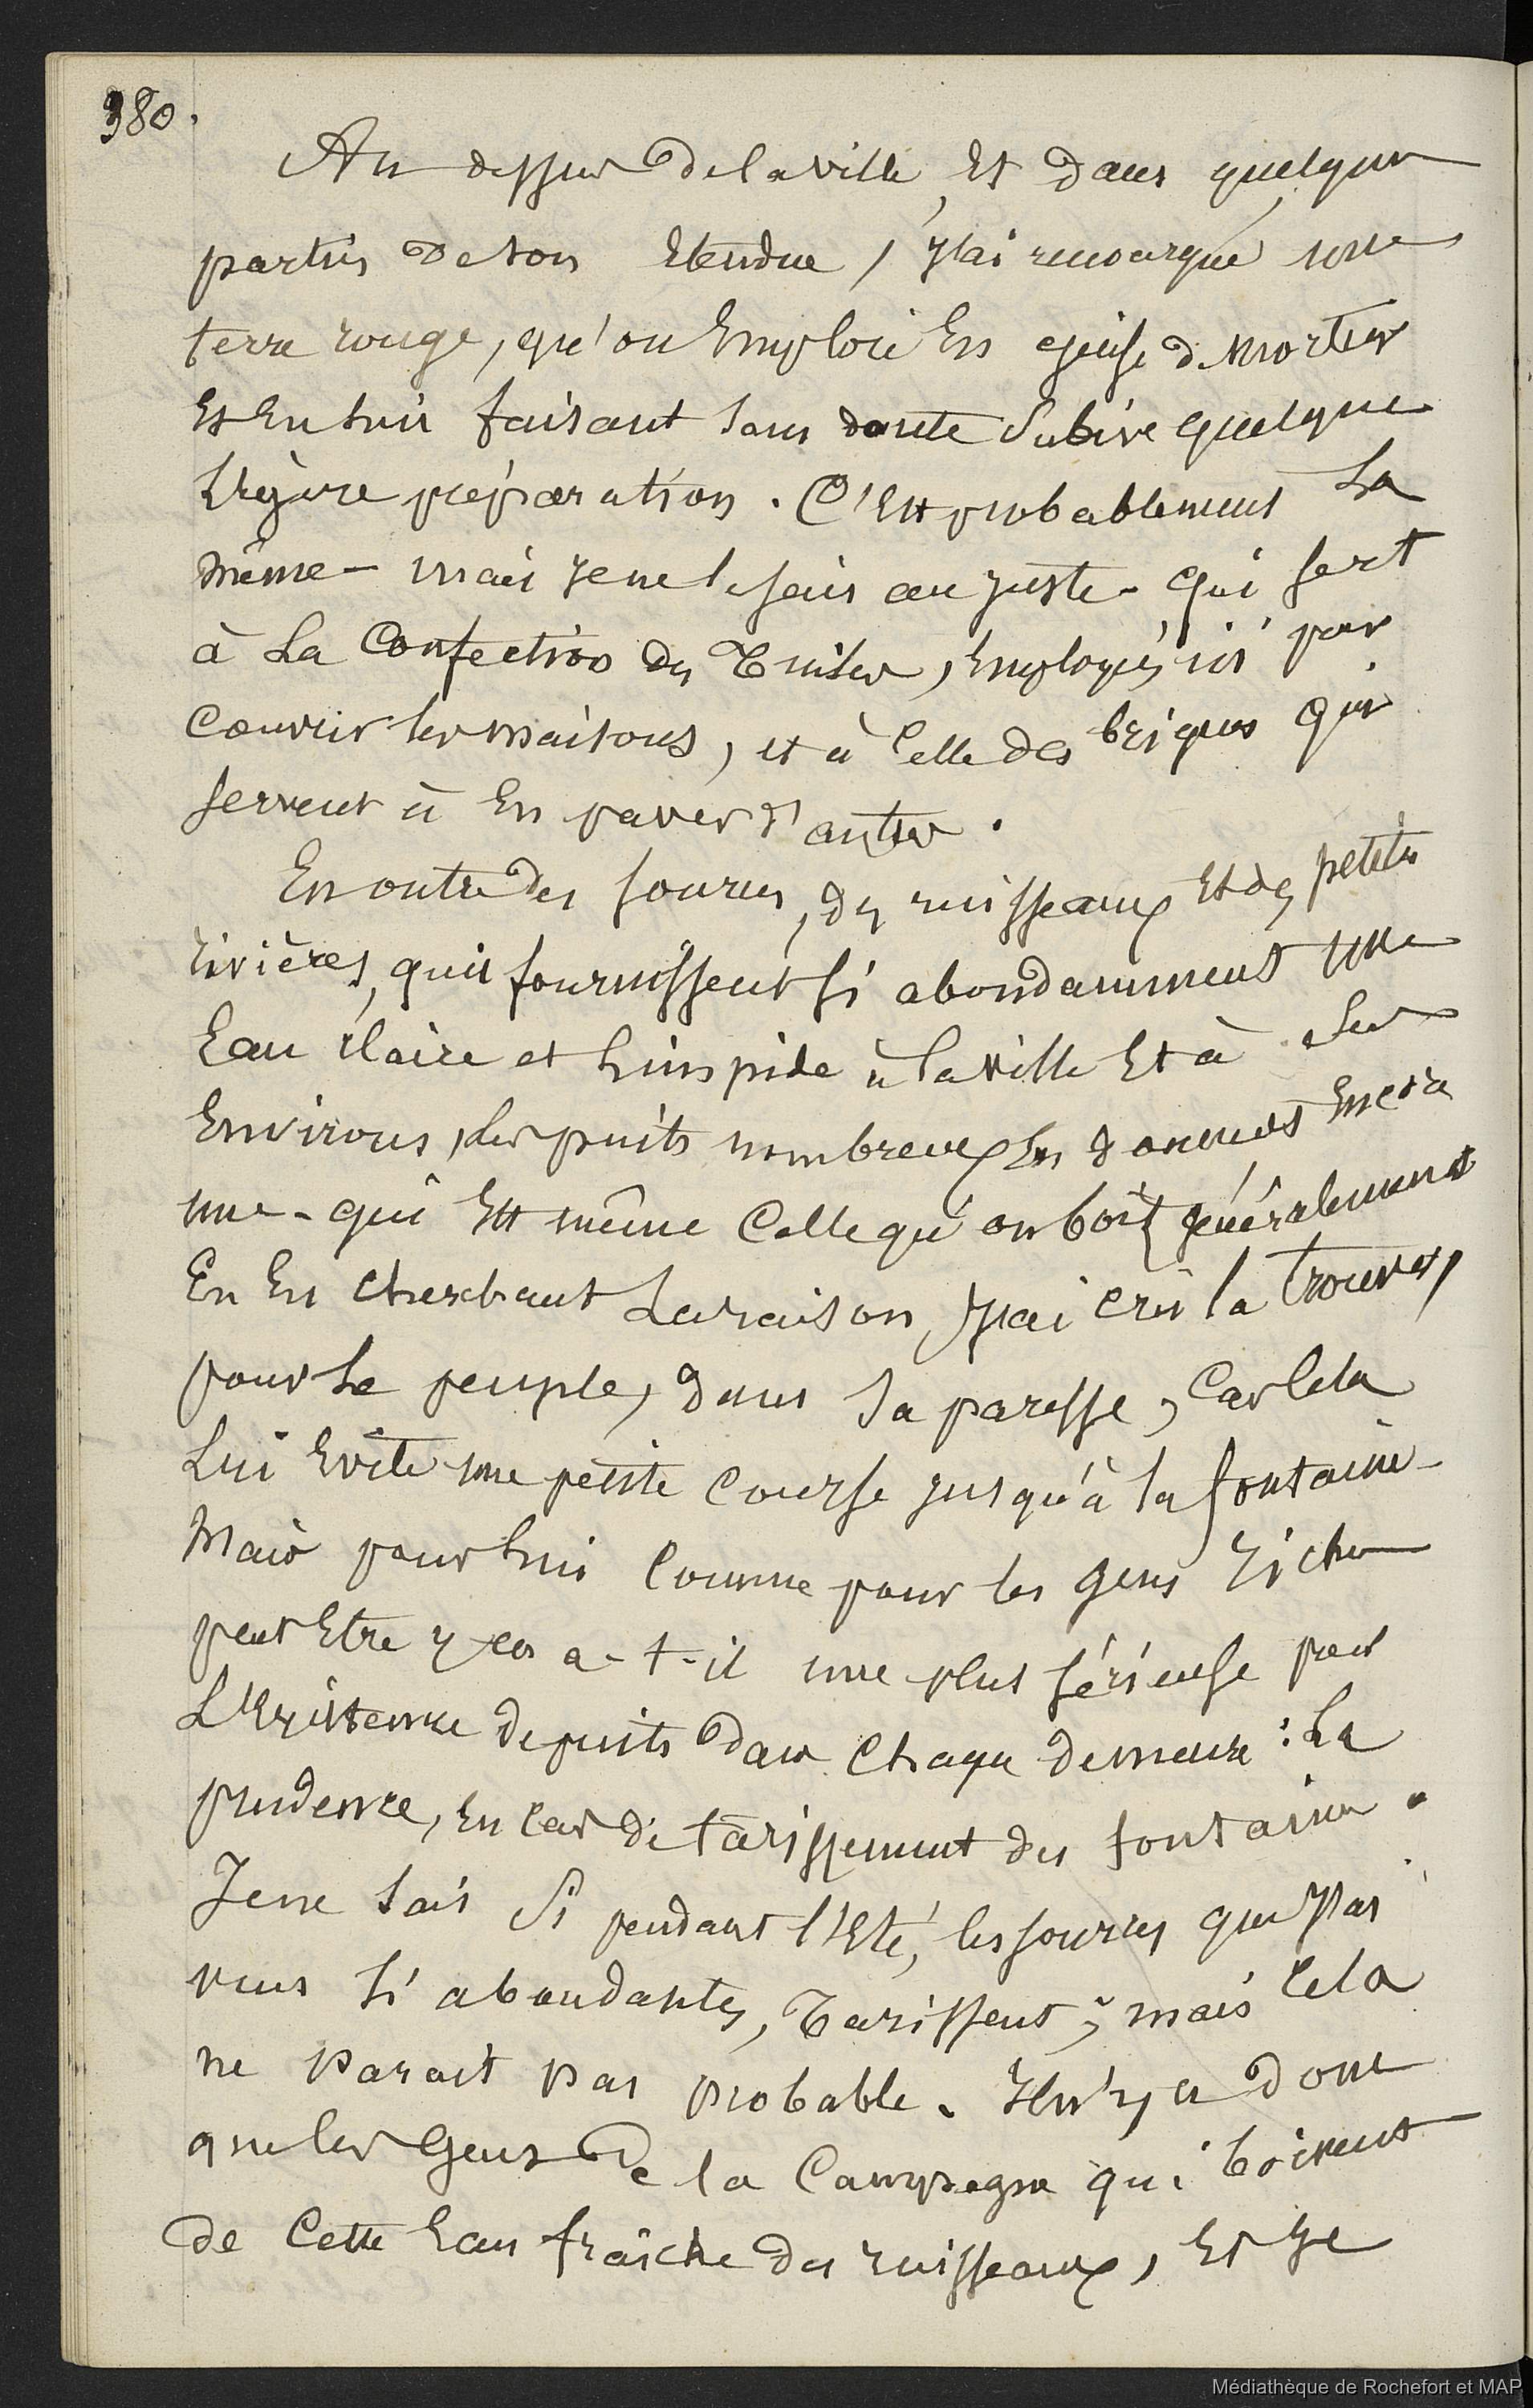 380.
Au dessus de la ville, et dans quelques
parties de son étendue, j'ai remarqué une
terre rouge, qu'on emploie en guise de mortier
et en lui faisant sans doute subir quelque
légère préparation. C'est probablement la
même - mais je ne le sais au juste - qui sert
à la confection des tuiles, employées ici pour
couvrir les maisons, et à celle des briques qui
servent à en paver d'autres.
En outre des sources, des ruisseaux et des petites
rivières, qui fournissent si abondamment une
eau claire et limpide à la ville et à ses
environs, les puits nombreux en donnent encore
une - qui est même celle qu'on boit généralement
En en cherchant la raison, j'ai cru la trouver,
pour le peuple, dans sa paresse, car cela
lui évite une petite course jusqu'à la fontaine -
Mais pour lui comme pour les gens riches
peut être y en a-t-il une plus sérieuse pour
l'existence de puits dans chaque demeure : la
prudence, en cas de tarissement des fontaines.
Je ne sais si pendant l'été, les sources que j'ai
vues si abondantes, tarissent ; mais cela
ne parait pas probable. Il n'y a donc
que les gens de la campagne qui boivent
de cette eau fraîche des ruisseaux, et je
Médiathèque de Rochefort et MAP